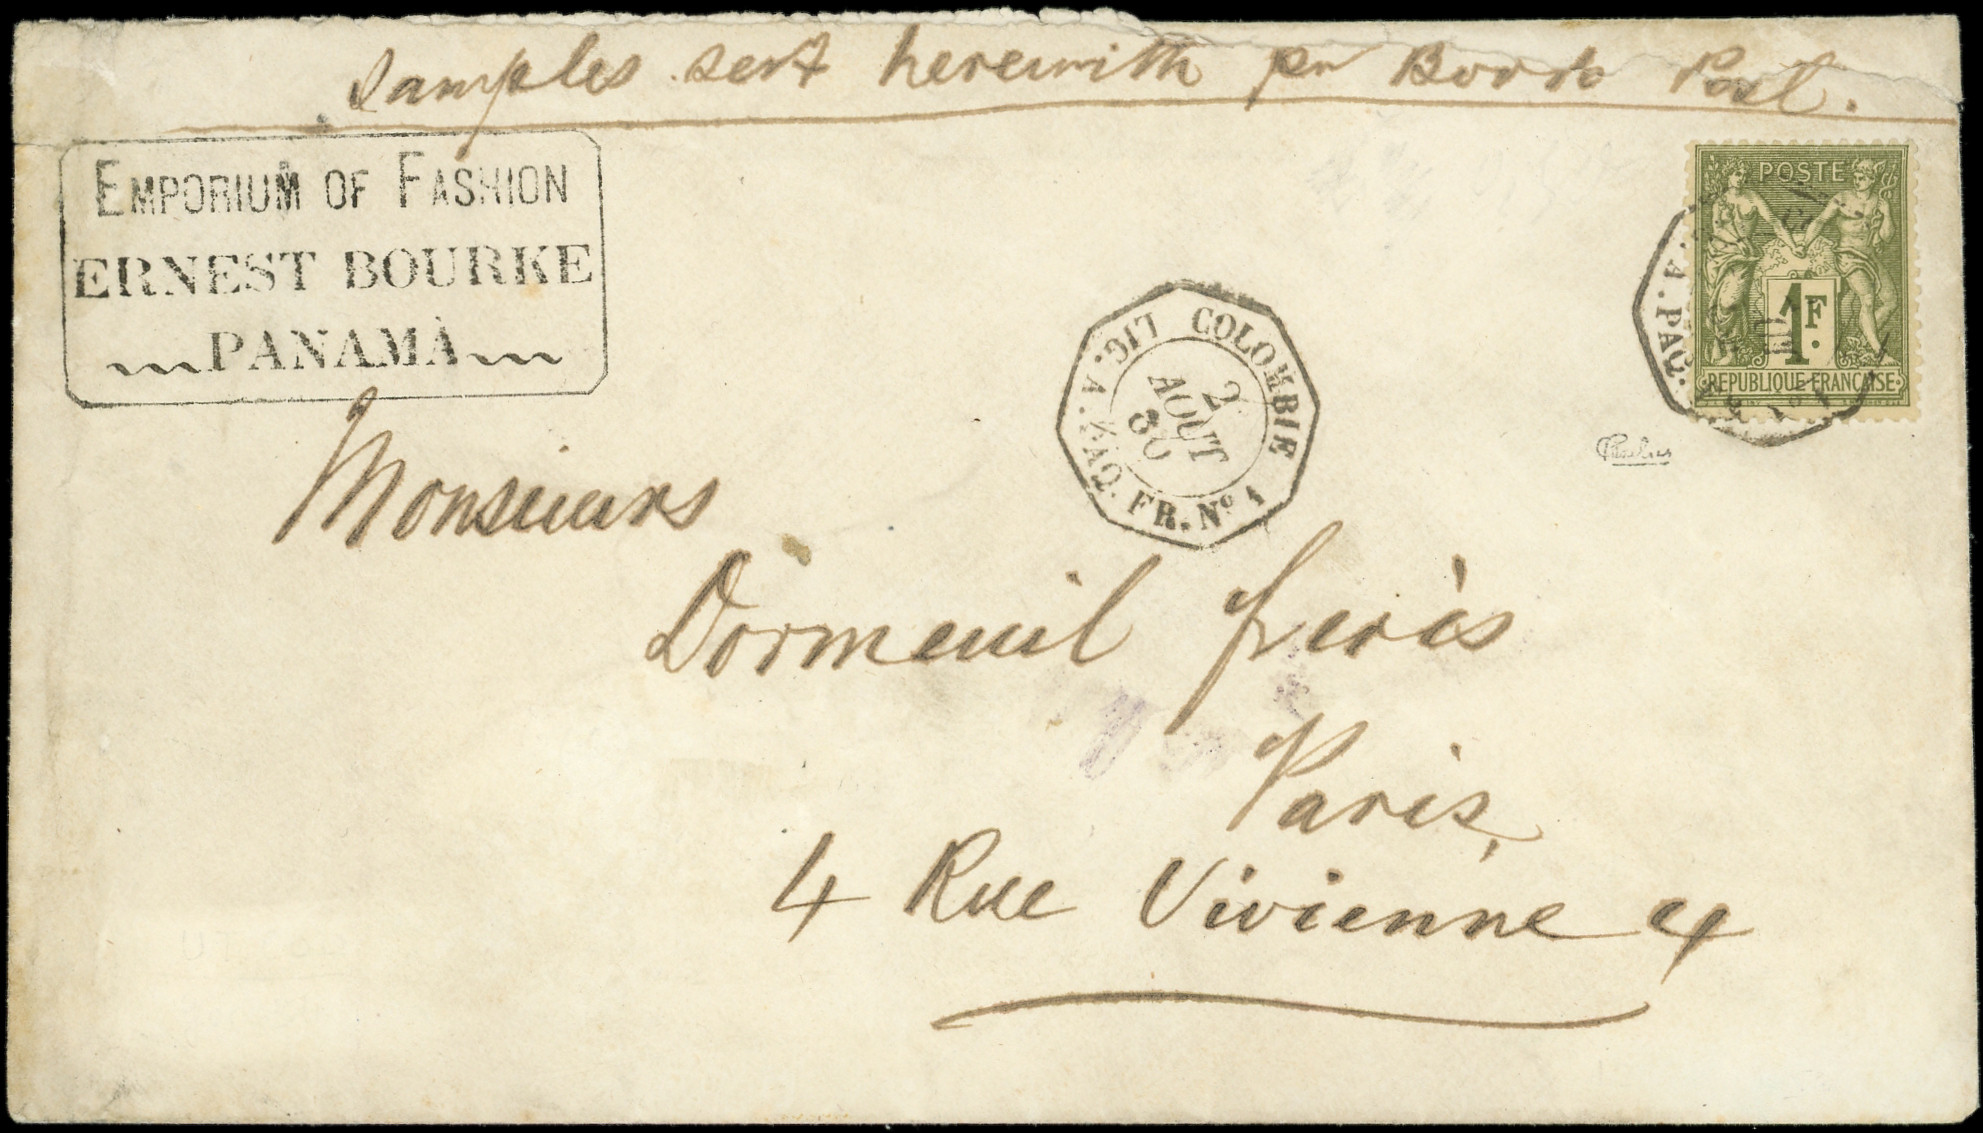 Samples sent herewith pr Bordo Post.
EMPORIUM OF FASHION
ERNEST BOURKE
PANAMÀ
POSTE
1F
REPUBLIQUE FRANCAISE
A. PAQ.
COLOMBIE
2
AOUT
80
LIG. A. PAQ. FR. Nº 1
Monsieurs
Dormeuil frerès
Paris,
4 Rue Vivienne 4